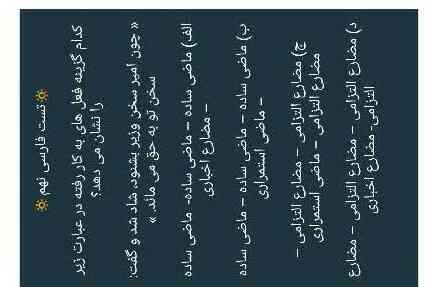 ☀ تست فارسی نهم ☀
کدام گزینه فعل های به کار رفته در عبارت زیر
را نشان می دهد؟
« چون امیر سخن وزیر بشنود، شاد شد و گفت:
سخن تو به حق می ماند. »
الف) ماضی ساده – ماضی ساده- ماضی ساده
– مضارع اخباری
ب) ماضی ساده – ماضی ساده – ماضی ساده
– ماضی استمراری
ج) مضارع التزامی – مضارع التزامی –
مضارع التزامی – ماضی استمراری
د) مضارع التزامی – مضارع التزامی – مضارع
التزامی- مضارع اخباری